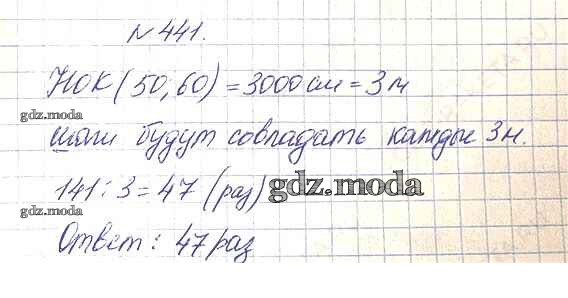 № 441.
НОК (50; 60) = 3000 см = 3 м
gdz.moda
шаги будут совпадать каждые 3 м.
141 : 3 = 47 (раз)
gdz.moda
gdz.moda
Ответ: 47 раз